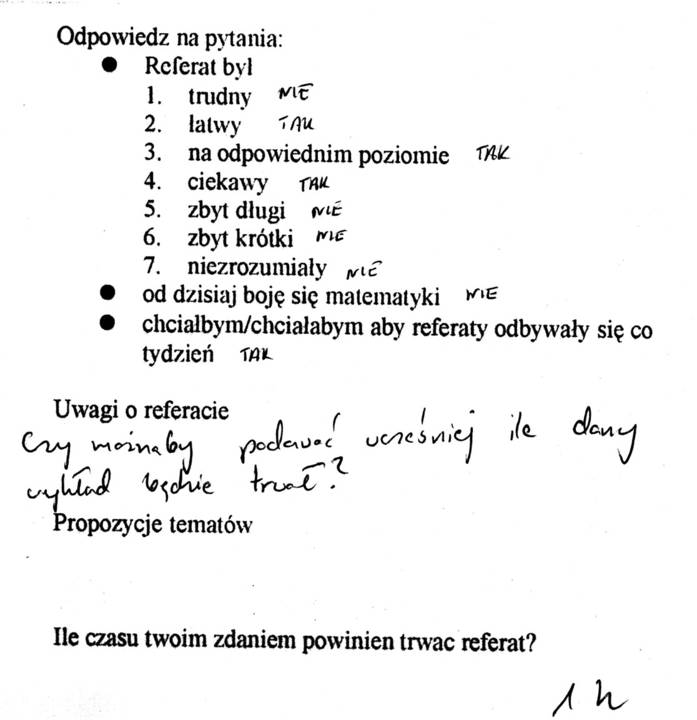 Odpowiedz na pytania:
● Referat był
1. trudny NIE
2. łatwy TAK
3. na odpowiednim poziomie TAK
4. ciekawy TAK
5. zbyt długi NIE
6. zbyt krótki NIE
7. niezrozumiały NIE
● od dzisiaj boję się matematyki NIE
● chciałbym/chciałabym aby referaty odbywały się co
tydzień TAK
Uwagi o referacie
Czy możnaby podawać wcześniej ile dany
wykład będzie trwał?
Propozycje tematów
Ile czasu twoim zdaniem powinien trwac referat?
1 h